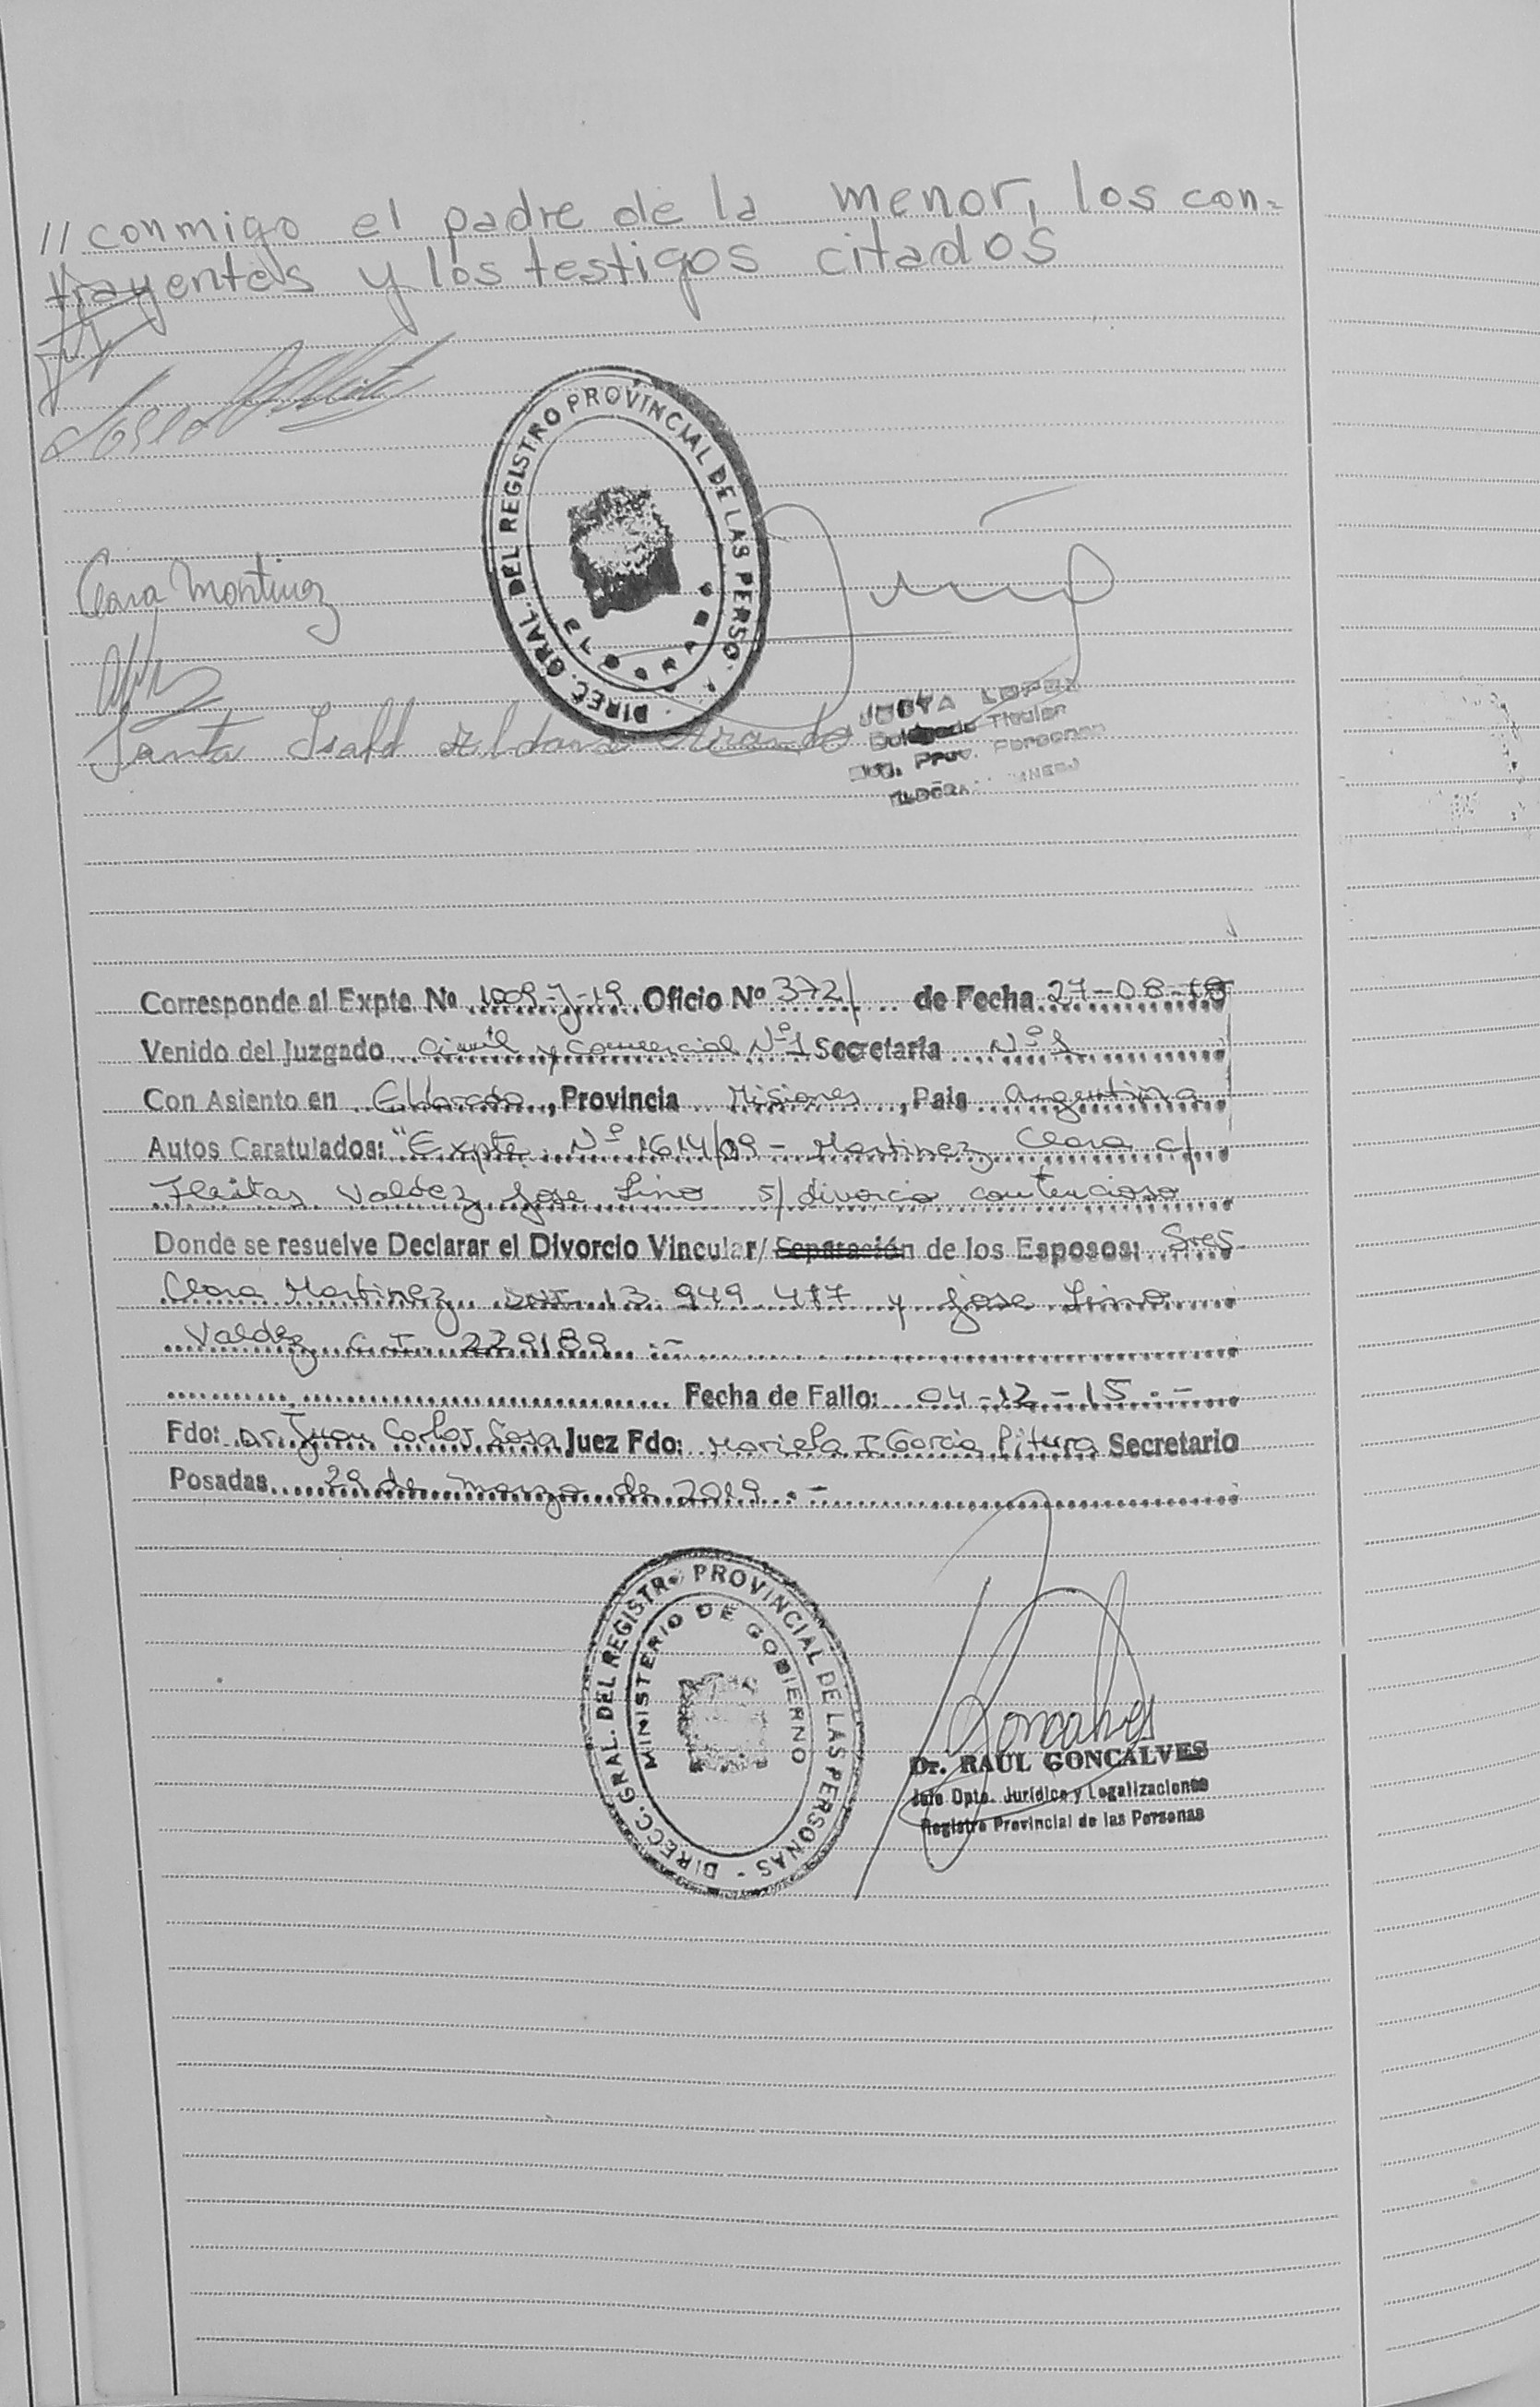 // conmigo el padre de la menor, los con=
trayentes y los testigos citados
DIREC. GRAL. DEL REGISTRO PROVINCIAL DE LAS PERSO
Clara Martinez
Santa
LOPEZ
Titular
Prov. Personas
Corresponde al Expte. Nº 1009-J-19 Oficio Nº 372/ de Fecha 27-08-18
Venido del Juzgado Civil y Comercial Nº1 Secretaria Nº 1
Con Asiento en Eldorado, Provincia Misiones, Pais Argentina
Autos Caratulados: "Expte. Nº 1614/09 - Martinez Clara c/
Fleitas Valdez Jose Lino s/ divorcio contencioso
Donde se resuelve Declarar el Divorcio Vincular/ Separación de los Esposos: Sres.
Clara Martinez DNI 13 949 477 y Jose Lino
Valdez C.I. 229189 .-
Fecha de Fallo: 04-12-15.-
Fdo: Dr. Juan Carlos Sosa Juez Fdo: Mariela I Garcia Secretario
Posadas 29 de marzo de 2019.-
DIRECC. GRAL. DEL REGISTRO PROVINCIAL DE LAS PERSONAS -
MINISTERIO DE GOBIERNO
Dr. RAUL GONCALVES
Jefe Dpto. Jurídico y Legalizaciones
Registro Provincial de las Personas